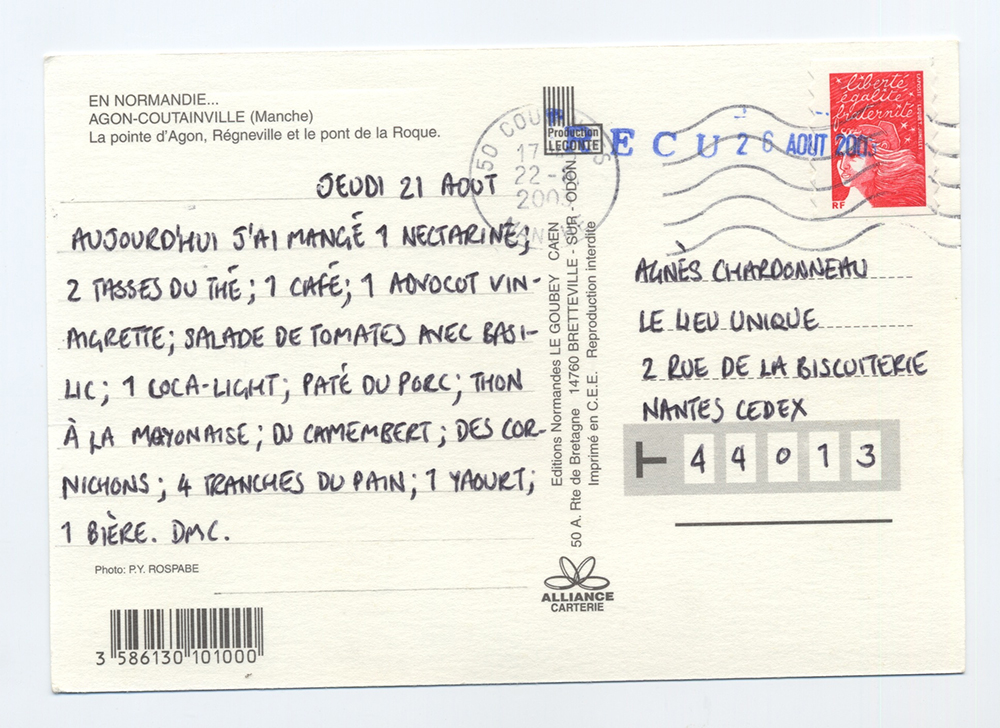 EN NORMANDIE...
AGON-COUTAINVILLE (Manche)
La pointe d'Agon, Régneville et le pont de la Roque.
JEUDI 21 AOUT
AUJOURD'HUI J'AI MANGÉ 1 NECTARINE;
2 TASSES DU THÉ; 1 CAFÉ; 1 ADVOCOT VIN-
AIGRETTE; SALADE DE TOMATES AVEC BASI-
LIC; 1 COCA-LIGHT; PATÉ DU PORC; THON
À LA MAYONAISE; DU CAMEMBERT; DES COR-
NICHONS; 4 TRANCHES DU PAIN; 1 YAOURT;
1 BIÈRE. DMC.
Photo: P.Y. ROSPABE
3 586130 101000
Editions Normandes LE GOUBEY CAEN
50 A. Rte de Bretagne 14760 BRETTEVILLE - SUR - ODON
Imprimé en C.E.E. Reproduction interdite
Production
LECONTE
ALLIANCE
CARTERIE
50
17
22-
200
RECU 26 AOUT
liberté
égalité
fraternité
RF
AGNÈS CHARDONNEAU
LE LIEU UNIQUE
2 RUE DE LA BISCUITERIE
NANTES CEDEX
T 44013